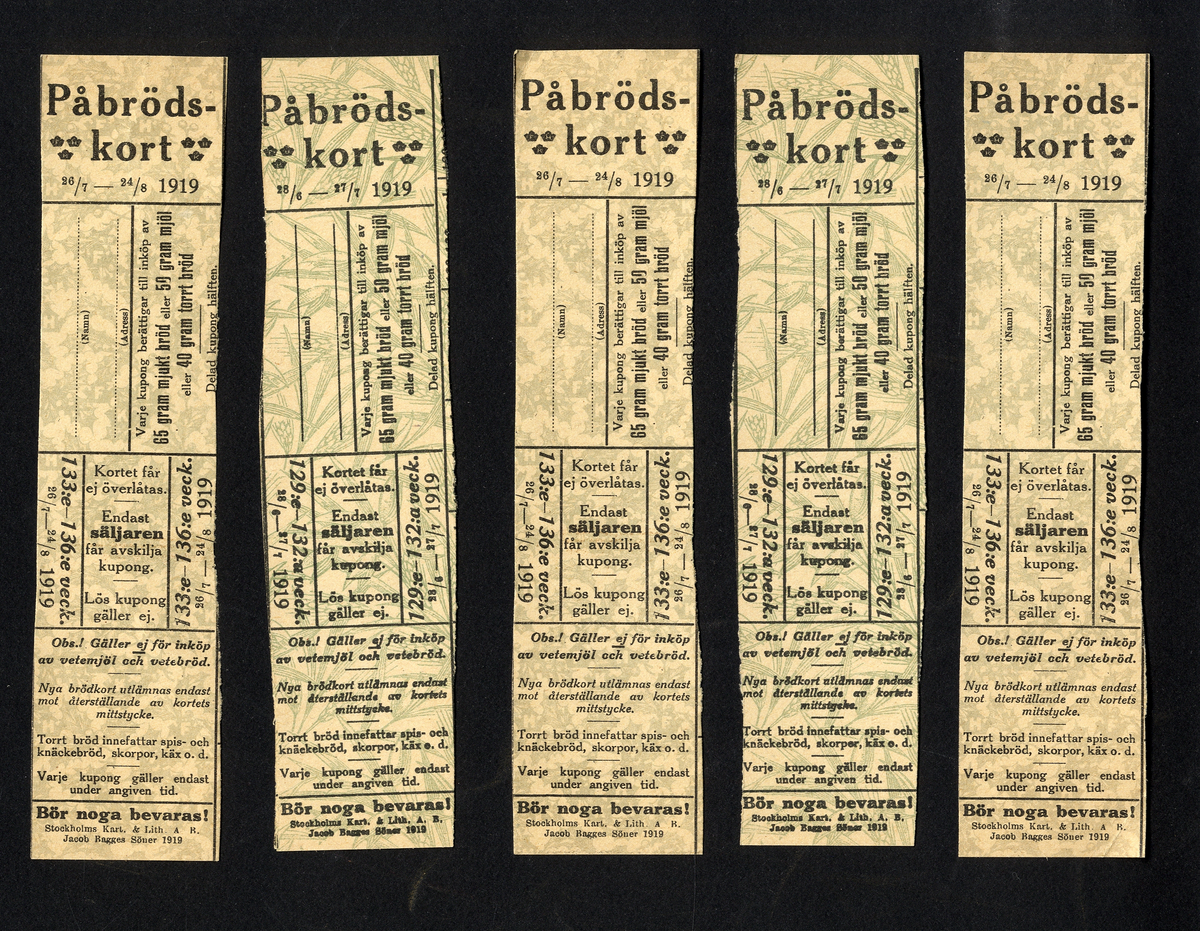 Påbröds-
kort
26/7 — 24/8 1919
(Namn)
(Adress)
Varje kupong berättigar till inköp av
65 gram mjukt bröd eller 50 gram mjöl
eller 40 gram torrt bröd
Delad kupong hälften.
26/7—24/8 1919
133:e—136:e veck.
Kortet får
ej överlåtas.
Endast
säljaren
får avskilja
kupong.
Lös kupong
gäller ej.
133:e—136:e veck.
26/7—24/8 1919
Obs.! Gäller ej för inköp
av vetemjöl och vetebröd.
Nya brödkort utlämnas endast
mot återställande av kortets
mittstycke.
Torrt bröd innefattar spis- och
knäckebröd, skorpor, käx o. d.
Varje kupong gäller endast
under angiven tid.
Bör noga bevaras!
Stockholms Kart. & Lith. A B.
Jacob Bagges Söner 1919
Påbröds-
kort
28/6 — 27/7 1919
(Namn)
(Adress)
Varje kupong berättigar till inköp av
65 gram mjukt bröd eller 50 gram mjöl
eller 40 gram torrt bröd
Delad kupong hälften.
28/6—27/7 1919
129:e—132:a veck.
Kortet får
ej överlåtas.
Endast
säljaren
får avskilja
kupong.
Lös kupong
gäller ej.
129:e—132:a veck.
28/6—27/7 1919
Obs.! Gäller ej för inköp
av vetemjöl och vetebröd.
Nya brödkort utlämnas endast
mot återställande av kortets
mittstycke.
Torrt bröd innefattar spis- och
knäckebröd, skorpor, käx o. d.
Varje kupong gäller endast
under angiven tid.
Bör noga bevaras!
Stockholms Kart. & Lith. A. B.
Jacob Bagges Söner 1919
Påbröds-
kort
26/7 — 24/8 1919
(Namn)
(Adress)
Varje kupong berättigar till inköp av
65 gram mjukt bröd eller 50 gram mjöl
eller 40 gram torrt bröd
Delad kupong hälften.
26/7—24/8 1919
133:e—136:e veck.
Kortet får
ej överlåtas.
Endast
säljaren
får avskilja
kupong.
Lös kupong
gäller ej.
133:e—136:e veck.
26/7—24/8 1919
Obs.! Gäller ej för inköp
av vetemjöl och vetebröd.
Nya brödkort utlämnas endast
mot återställande av kortets
mittstycke.
Torrt bröd innefattar spis- och
knäckebröd, skorpor, käx o. d.
Varje kupong gäller endast
under angiven tid.
Bör noga bevaras!
Stockholms Kart. & Lith. A B.
Jacob Bagges Söner 1919
Påbröds-
kort
28/6 — 27/7 1919
(Namn)
(Adress)
Varje kupong berättigar till inköp av
65 gram mjukt bröd eller 50 gram mjöl
eller 40 gram torrt bröd
Delad kupong hälften.
28/6—27/7 1919
129:e—132:a veck.
Kortet får
ej överlåtas.
Endast
säljaren
får avskilja
kupong.
Lös kupong
gäller ej.
129:e—132:a veck.
28/6—27/7 1919
Obs.! Gäller ej för inköp
av vetemjöl och vetebröd.
Nya brödkort utlämnas endast
mot återställande av kortets
mittstycke.
Torrt bröd innefattar spis- och
knäckebröd, skorpor, käx o. d.
Varje kupong gäller endast
under angiven tid.
Bör noga bevaras!
Stockholms Kart. & Lith. A. B.
Jacob Bagges Söner 1919
Påbröds-
kort
26/7 — 24/8 1919
(Namn)
(Adress)
Varje kupong berättigar till inköp av
65 gram mjukt bröd eller 50 gram mjöl
eller 40 gram torrt bröd
Delad kupong hälften.
26/7—24/8 1919
133:e—136:e veck.
Kortet får
ej överlåtas.
Endast
säljaren
får avskilja
kupong.
Lös kupong
gäller ej.
133:e—136:e veck.
26/7—24/8 1919
Obs.! Gäller ej för inköp
av vetemjöl och vetebröd.
Nya brödkort utlämnas endast
mot återställande av kortets
mittstycke.
Torrt bröd innefattar spis- och
knäckebröd, skorpor, käx o. d.
Varje kupong gäller endast
under angiven tid.
Bör noga bevaras!
Stockholms Kart. & Lith. A B.
Jacob Bagges Söner 1919